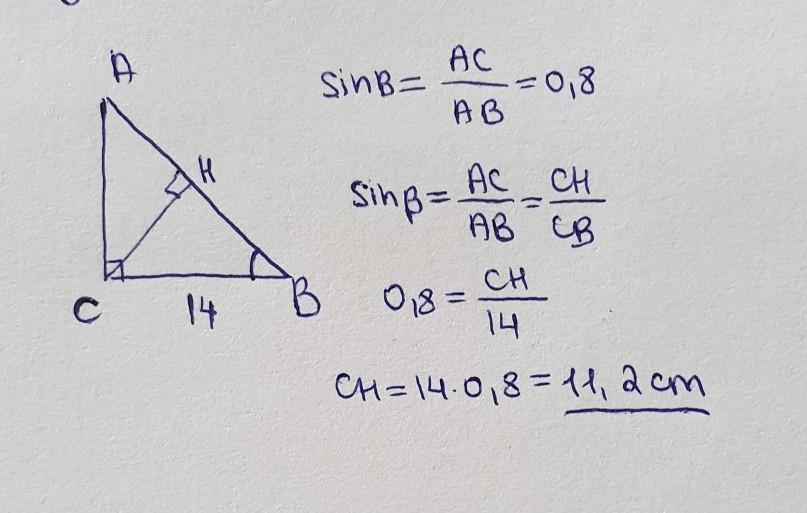 A
H
C
14
B
SinB = AC/AB = 0,8
Sinβ = AC/AB = CH/CB
0,8 = CH/14
CH = 14 · 0,8 = 11,2 cm